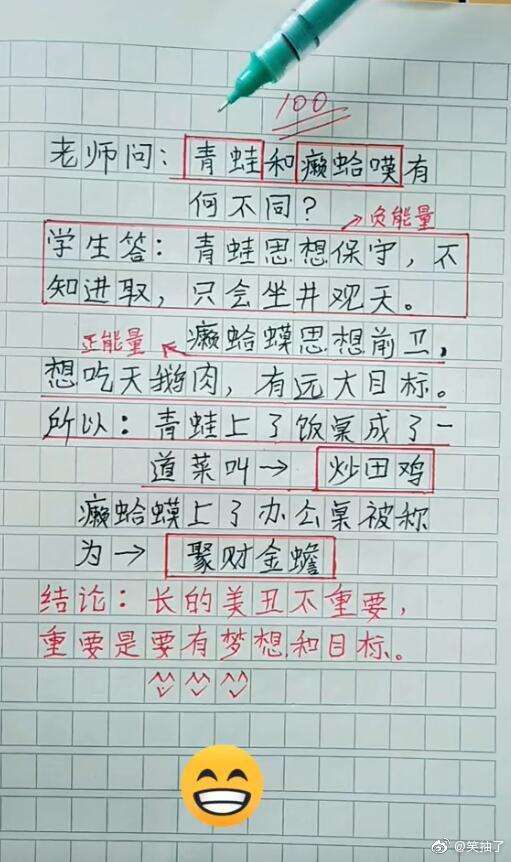 100
老师问：青蛙和癞蛤嗼有
何不同？
负能量
学生答：青蛙思想保守，不
知进取，只会坐井观天。
正能量
癞蛤蟆思想前卫，
想吃天鹅肉，有远大目标。
所以：青蛙上了饭桌成了一
道菜叫→炒田鸡
癞蛤蟆上了办公桌被称
为→聚财金蟾
结论：长的美丑不重要，
重要是要有梦想和目标。
@笑抽了